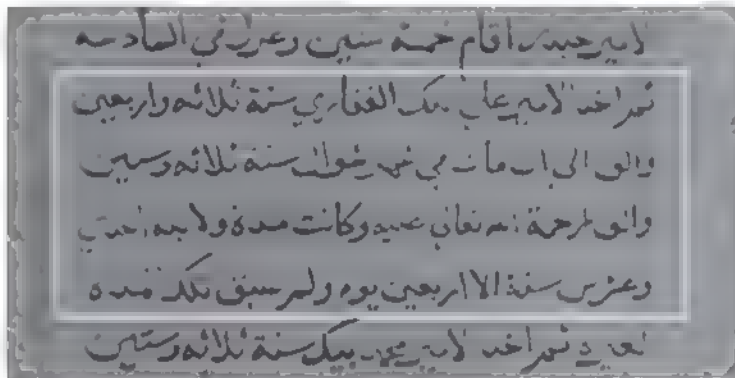 الامير حيدر اقام خمسة سنين وعزل في السادسه
ثم اخد الامير علي بيك الفقاري سنة ثلاثه واربعين
والف الى ان مات في شهر شوال سنة ثلاثه وستين
والف لرحمة الله تعالى عليه وكانت مدة ولايته احدي
وعشرين سنة الا اربعين يوم ولم سبق تلك المده
ثم اخد الامير محمد بيك سنة ثلاثه وستين